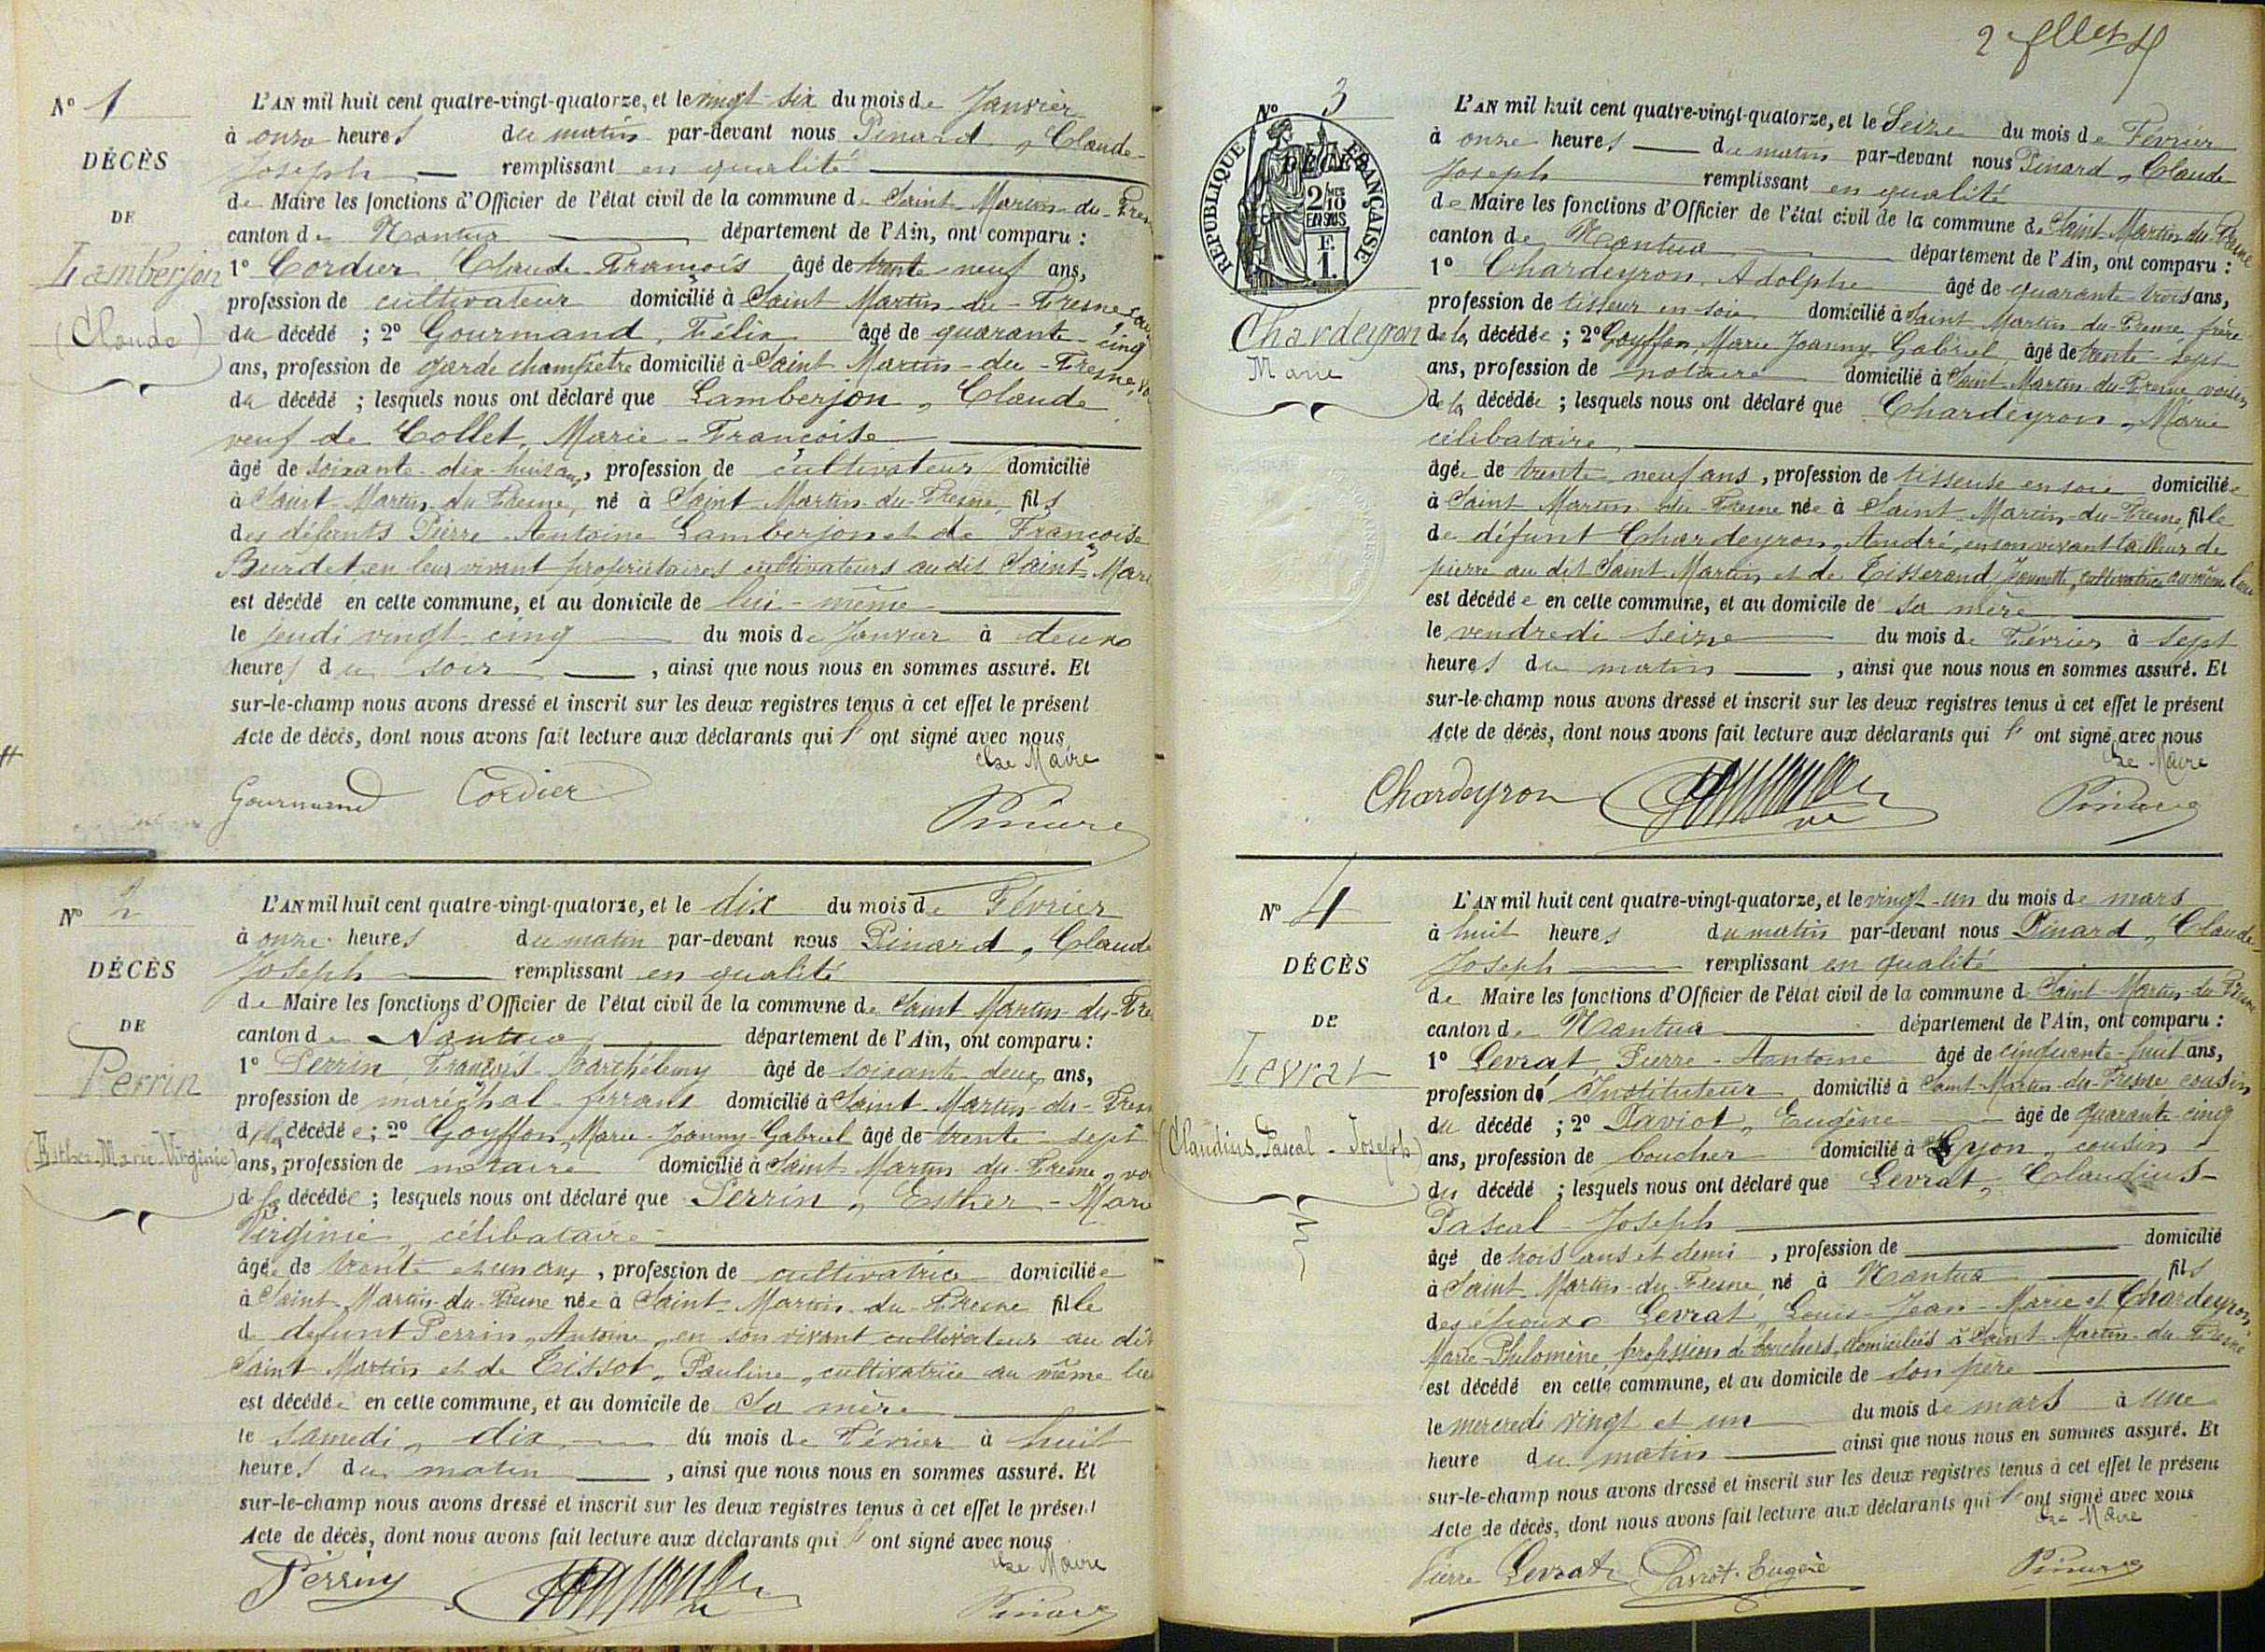 N° 1
DÉCÈS
DE
Lamberjon
(Claude)
L'AN mil huit cent quatre-vingt-quatorze, et le vingt-six du mois de Janvier
à onze heures du matin par-devant nous Pinard, Claude-
Joseph remplissant en qualité
de Maire les fonctions d'Officier de l'état civil de la commune de Saint-Martin-du-Fresne
canton de Nantua département de l'Ain, ont comparu :
1° Cordier Claude-François âgé de trente-neuf ans,
profession de cultivateur domicilié à Saint Martin-du-Fresne
du décédé ; 2° Gourmand, Félix âgé de quarante-cinq
ans, profession de garde champêtre domicilié à Saint Martin-du-Fresne,
du décédé ; lesquels nous ont déclaré que Lamberjon, Claude
veuf de Collet, Marie-Françoise
âgé de soixante-dix-huit ans, profession de cultivateur domicilié
à Saint-Martin-du-Fresne, né à Saint-Martin-du-Fresne, fils
des défunts Pierre-Antoine Lamberjon et de Françoise
Burdet, en leur vivant propriétaires cultivateurs au dit Saint-Mar
est décédé en cette commune, et au domicile de lui-même
le jeudi vingt-cinq du mois de Janvier à deux
heures du soir, ainsi que nous nous en sommes assuré. Et
sur-le-champ nous avons dressé et inscrit sur les deux registres tenus à cet effet le présent
Acte de décès, dont nous avons fait lecture aux déclarants qui l' ont signé avec nous
Le Maire
Gourmand Cordier Pinard
N° 2
DÉCÈS
DE
Perrin
(Esther-Marie-Virginie)
L'AN mil huit cent quatre-vingt-quatorze, et le dix du mois de Février
à onze heures du matin par-devant nous Pinard, Claude
Joseph remplissant en qualité
de Maire les fonctions d'Officier de l'état civil de la commune de Saint Martin-du-Fre
canton de Nantua département de l'Ain, ont comparu :
1° Perrin, François-Barthélemy âgé de soixante-deux ans,
profession de maréchal-ferrant domicilié à Saint-Martin-du-Fresn
de la décédée ; 2° Goyffon, Marie-Joanny-Gabriel âgé de trente-sept
ans, profession de notaire domicilié à Saint-Martin du-Fresne, vo
de la décédée ; lesquels nous ont déclaré que Perrin, Esther-Marie
Virginie, célibataire
âgée de trente et un ans, profession de cultivatrice domiciliée
à Saint-Martin-du-Fresne née à Saint-Martin-du-Fresne fille
de défunt Perrin, Antoine, en son vivant cultivateur au dit
Saint Martin et de Tissot, Pauline, cultivatrice au même lieu
est décédée en cette commune, et au domicile de Sa mère
le samedi, dix du mois de Février à huit
heures du matin, ainsi que nous nous en sommes assuré. Et
sur-le-champ nous avons dressé et inscrit sur les deux registres tenus à cet effet le présent
Acte de décès, dont nous avons fait lecture aux déclarants qui l' ont signé avec nous
Le Maire
Perrin Pinard
2
N° 3
DÉCÈS
RÉPUBLIQUE FRANÇAISE
2/10
EN SUS
F.
1.
Chardeyron
Marie
L'AN mil huit cent quatre-vingt-quatorze, et le Seize du mois de Février
à onze heures du matin par-devant nous Pinard, Claude
Joseph remplissant en qualité
de Maire les fonctions d'Officier de l'état civil de la commune de Saint-Martin du Fresne
canton de Nantua département de l'Ain, ont comparu :
1° Chardeyron, Adolphe âgé de quarante trois ans,
profession de tisseur en soie domicilié à Saint Martin du-Fresne, frère
de la décédée ; 2° Goyffon, Marie Joanny-Gabriel âgé de trente-sept
ans, profession de notaire domicilié à Saint-Martin-du-Fresne, voisin
de la décédée ; lesquels nous ont déclaré que Chardeyron, Marie
célibataire,
âgée de trente neuf ans, profession de tisseuse en soie domiciliée
à Saint Martin du-Fresne née à Saint-Martin-du-Fresne, fille
de défunt Chardeyron, André, en son vivant tailleur de
pierre au dit Saint Martin et de Tisserand, Jeannette, cultivatrice au même lieu
est décédée en cette commune, et au domicile de sa mère
le vendredi seize du mois de Février à sept
heures du matin, ainsi que nous nous en sommes assuré. Et
sur-le-champ nous avons dressé et inscrit sur les deux registres tenus à cet effet le présent
Acte de décès, dont nous avons fait lecture aux déclarants qui l' ont signé avec nous
Le Maire
Chardeyron Pinard
N° 4
DÉCÈS
DE
Levrat
(Claudius-Pascal-Joseph)
L'AN mil huit cent quatre-vingt-quatorze, et le vingt-un du mois de mars
à huit heures du matin par-devant nous Pinard, Claude-
Joseph remplissant en qualité
de Maire les fonctions d'Officier de l'état civil de la commune de Saint-Martin-du-Fresne
canton de Nantua département de l'Ain, ont comparu :
1° Levrat, Pierre-Antoine âgé de cinquante-huit ans,
profession d' Instituteur domicilié à Saint-Martin-du-Fresne cousin
du décédé ; 2° Paviot, Eugène âgé de quarante-cinq
ans, profession de boucher domicilié à Lyon, cousin
du décédé ; lesquels nous ont déclaré que Levrat, Claudius-
Pascal-Joseph
âgé de trois ans et demi, profession de domicilié
à Saint-Martin-du-Fresne, né à Nantua fils
des époux Levrat, Louis-Jean-Marie et Chardeyron,
Marie-Philomène, profession de bouchers, domiciliés à Saint-Martin-du-Fresne
est décédé en cette commune, et au domicile de son père
le mercredi vingt et un du mois de mars à une
heure du matin ainsi que nous nous en sommes assuré. Et
sur-le-champ nous avons dressé et inscrit sur les deux registres tenus à cet effet le présent
Acte de décès, dont nous avons fait lecture aux déclarants qui l' ont signé avec nous
Le Maire
Pierre Levrat Paviot Eugène Pinard